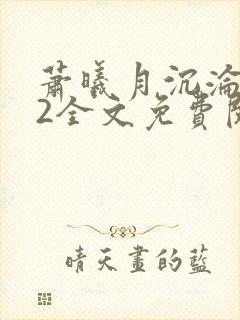 萧曦月沉沦
2全文免費閱
晴天畫的藍